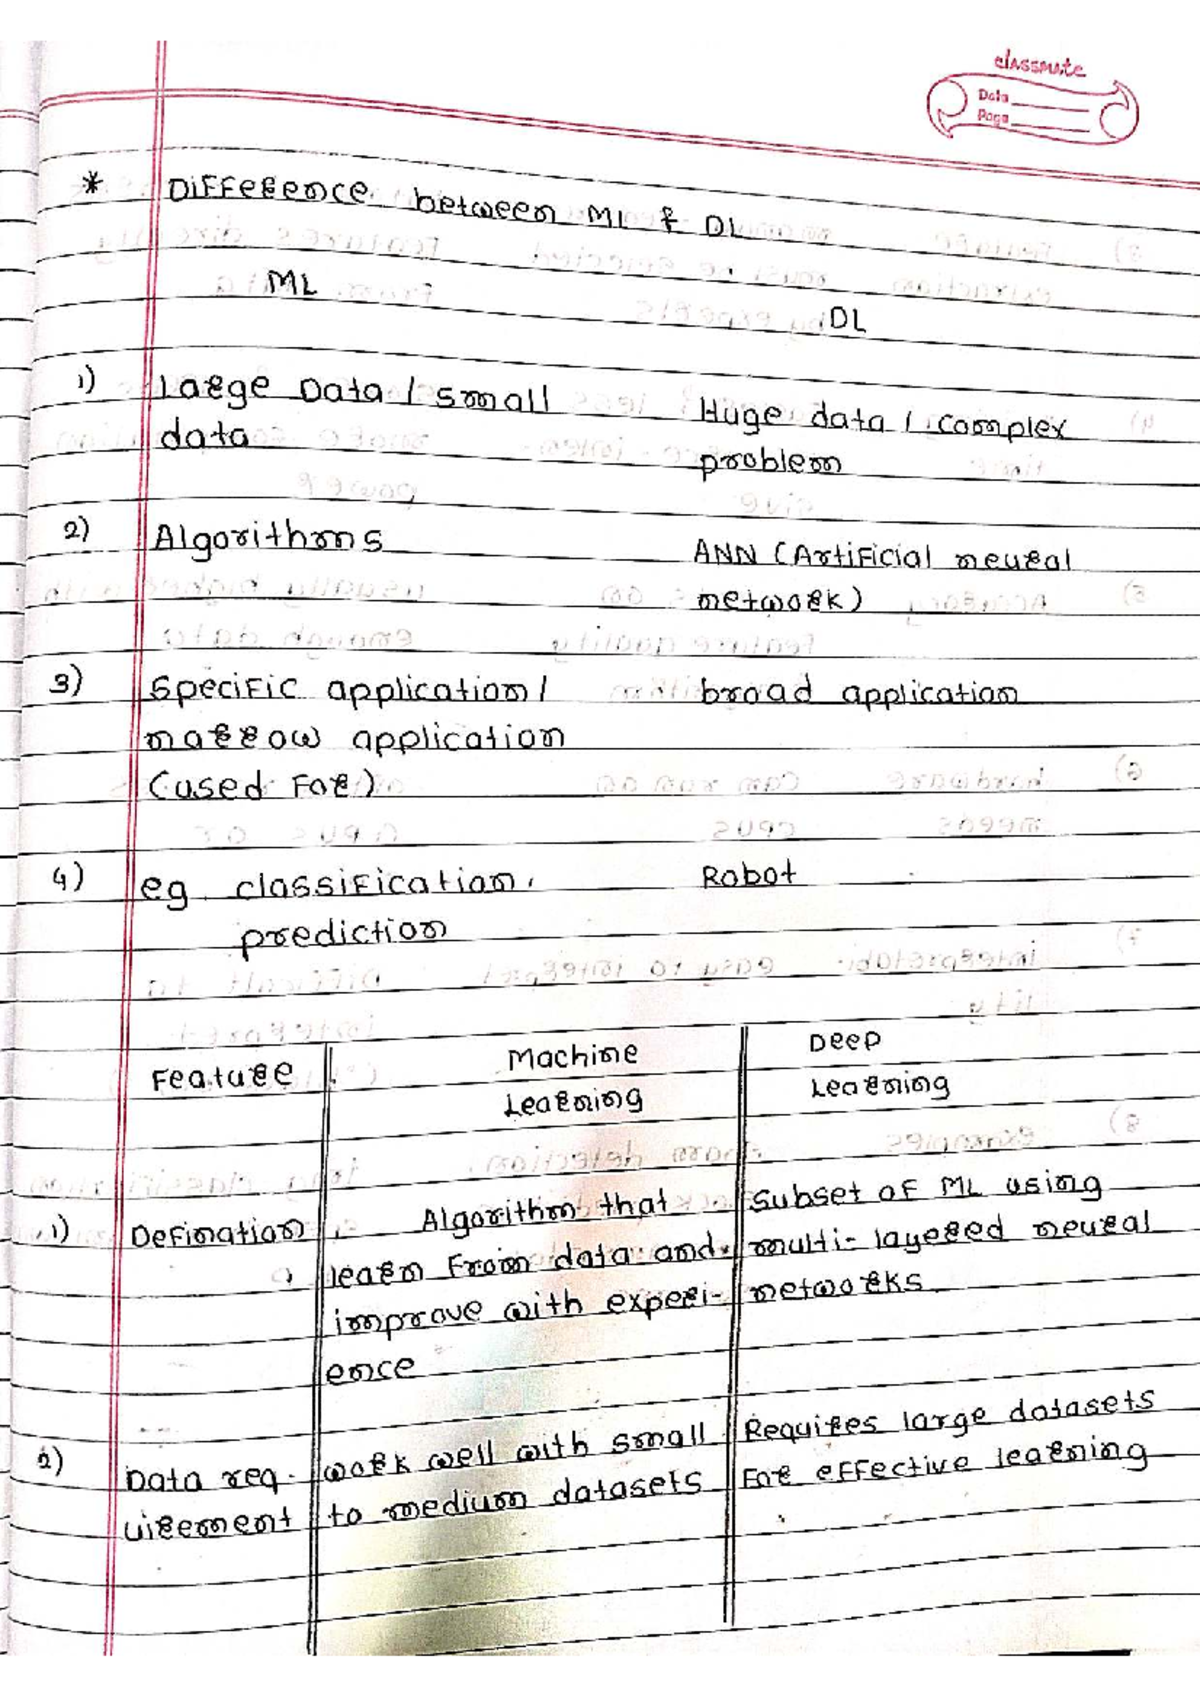 classmate
Date
Page
* Difference between ML & DL
ML DL
1) Large Data / small Huge data / complex
data problem
2) Algorithms ANN (Artificial neural
network)
3) Specific application / broad application
narrow application
(used for)
4) eg. classification, Robot
prediction
Feature Machine Deep
Learning Learning
1) Defination Algorithm that Subset of ML using
learn from data and multi-layered neural
improve with experi- networks.
ence
2) Data req- work well with small Requires large datasets
uirement to medium datasets For effective learning